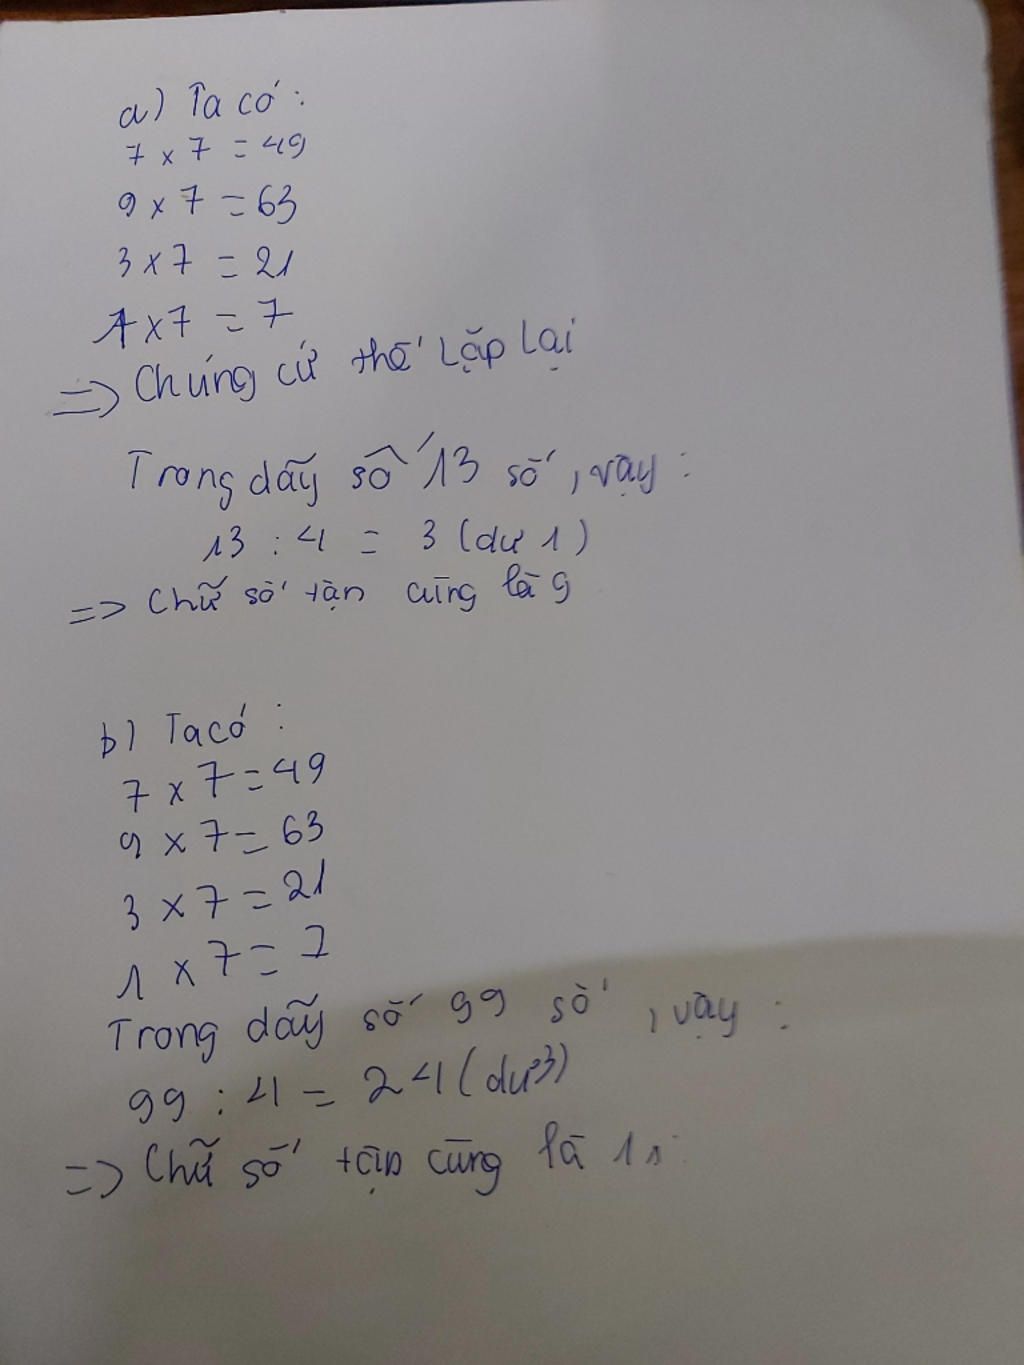 a) Ta có:
7 x 7 = 49
9 x 7 = 63
3 x 7 = 21
1 x 7 = 7
=> Chúng cứ thế lặp lại
Trong dãy số 13 số, vậy:
13 : 4 = 3 (dư 1)
=> Chữ số tận cùng là 9
b) Ta có:
7 x 7 = 49
9 x 7 = 63
3 x 7 = 21
1 x 7 = 7
Trong dãy số 99 số, vậy:
99 : 4 = 24 (dư 3)
=> Chữ số tận cùng là 1